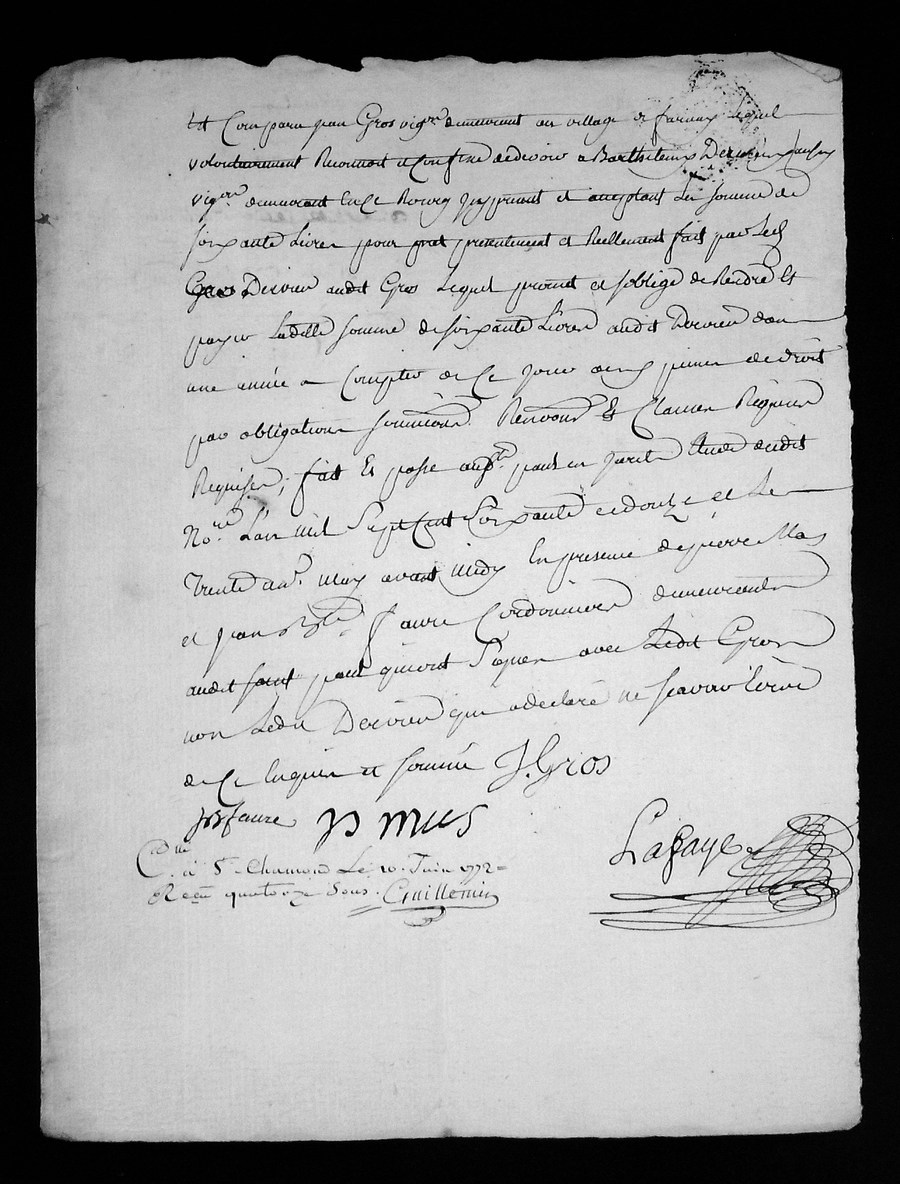 Est Comparu jean Gros vig.on demeurant au village de farnay Lequel
volontairement Reconnoit et Confesse de devoir a Barthelemy Dervieu
vig.on demeurant En Ce Bourg icy present et acceptant La Somme de
soixante Livres pour pret presentement et Reellement fait par Led.
Gros Dervieu audit Gros Lequel promet et s'oblige de Rendre Et
payer Laditte somme de soixante Livres audit Dervieu dans
une année a Compter de Ce jour aux peines de droit
par obligations soumissions Renvons. Et Clauses
Requises, fait Et passé paul en jarets Etude dudit
No.re L'an mil Sept Cent Soixante et douze et Le
Trente un.e may avant midy En presence de pierre Mas
et jean B.te faure Cordonniers demeurants
audit saint paul qui ont Signés avec Ledit Gros
non Ledit Dervieu qui a declaré ne sçavoir Ecrire
de Ce Enquis et sommé J. Gros
jb faure p mas
Lafaye
C.ollé à S.t Chamond Le 10. Juin 1772
Reçu quatorze Sous. Guillemin